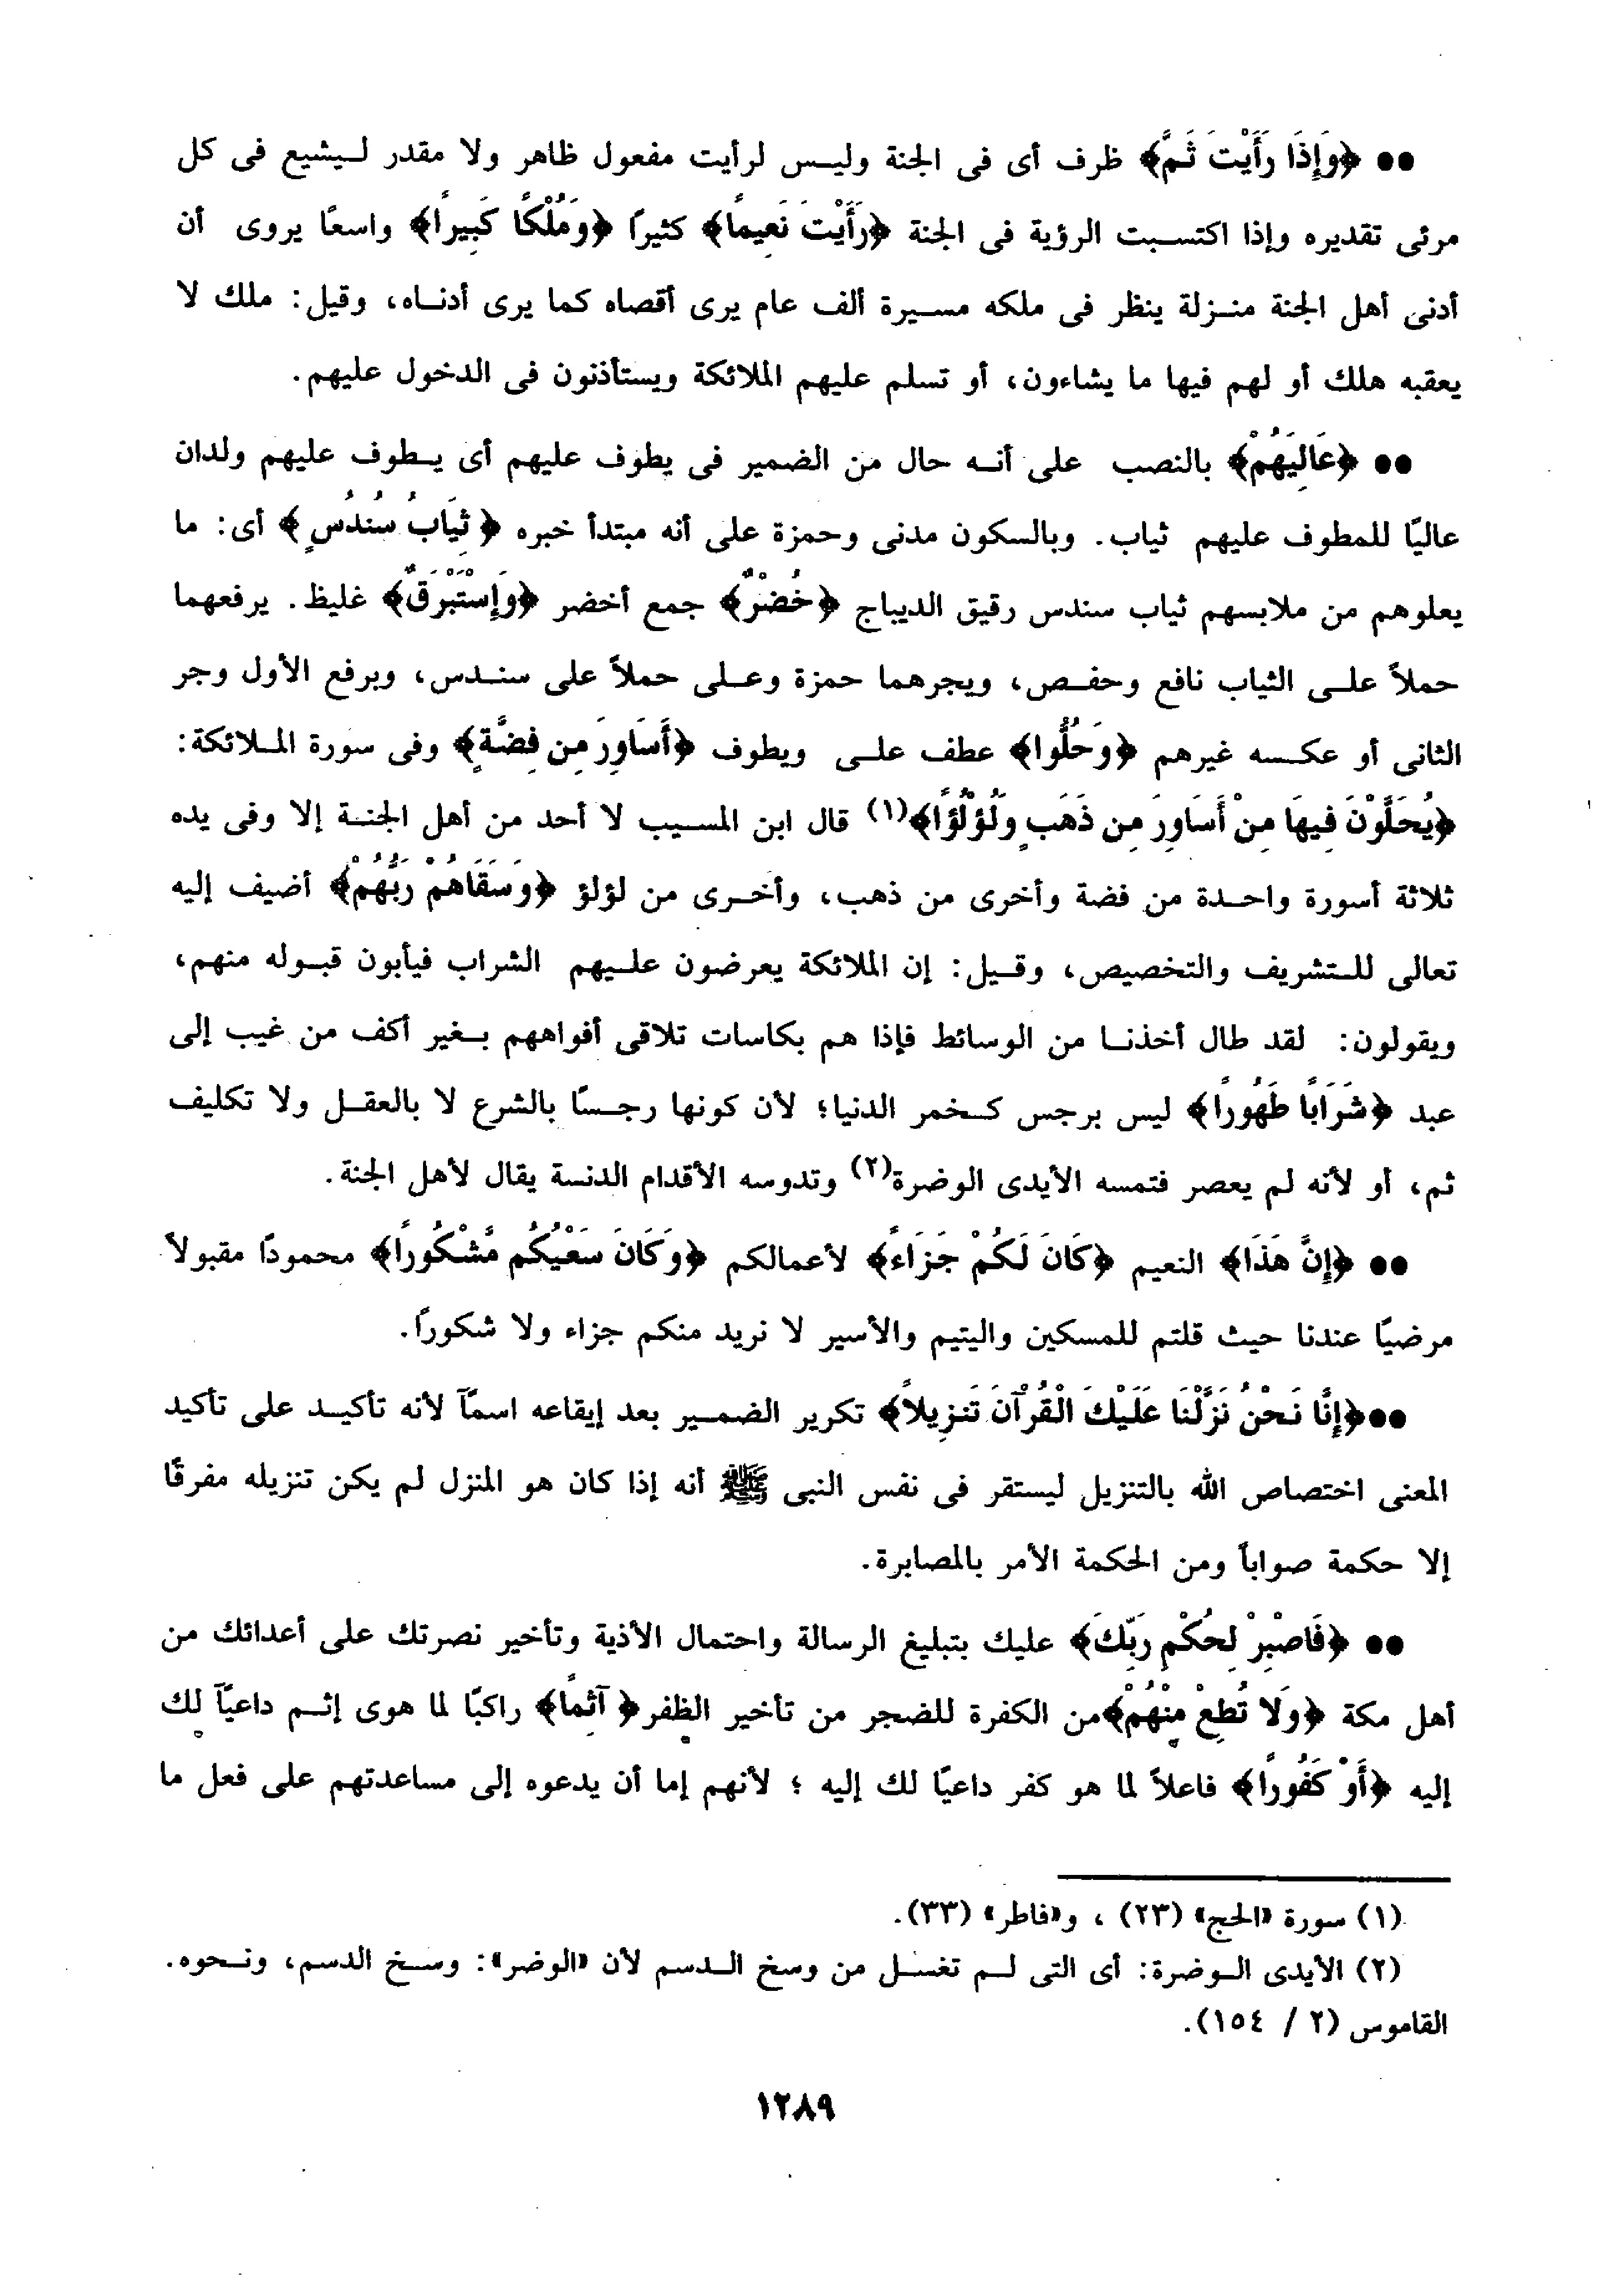 ●● ﴿وَإِذَا رَأَيْتَ ثَمَّ﴾ ظرف أى فى الجنة وليس لرأيت مفعول ظاهر ولا مقدر ليشيع فى كل
مرئى تقديره وإذا اكتسبت الرؤية فى الجنة ﴿رَأَيْتَ نَعِيمًا﴾ كثيرًا ﴿وَمُلْكًا كَبِيرًا﴾ واسعًا يروى أن
أدنى أهل الجنة منزلة ينظر فى ملكه مسيرة ألف عام يرى أقصاه كما يرى أدناه، وقيل: ملك لا
يعقبه هلك أو لهم فيها ما يشاءون، أو تسلم عليهم الملائكة ويستأذنون فى الدخول عليهم.
●● ﴿عَالِيَهُمْ﴾ بالنصب على أنه حال من الضمير فى يطوف عليهم أى يطوف عليهم ولدان
عاليًا للمطوف عليهم ثياب. وبالسكون مدنى وحمزة على أنه مبتدأ خبره ﴿ثِيَابُ سُندُسٍ﴾ أى: ما
يعلوهم من ملابسهم ثياب سندس رقيق الديباج ﴿خُضْرٌ﴾ جمع أخضر ﴿وَإِسْتَبْرَقٌ﴾ غليظ. يرفعهما
حملاً على الثياب نافع وحفص، ويجرهما حمزة وعلى حملاً على سندس، وبرفع الأول وجر
الثانى أو عكسه غيرهم ﴿وَحُلُّوا﴾ عطف على ويطوف ﴿أَسَاوِرَ مِن فِضَّةٍ﴾ وفى سورة الملائكة:
﴿يُحَلَّوْنَ فِيهَا مِنْ أَسَاوِرَ مِن ذَهَبٍ وَلُؤْلُؤًا﴾(١) قال ابن المسيب لا أحد من أهل الجنة إلا وفى يده
ثلاثة أسورة واحدة من فضة وأخرى من ذهب، وأخرى من لؤلؤ ﴿وَسَقَاهُمْ رَبُّهُمْ﴾ أضيف إليه
تعالى للتشريف والتخصيص، وقيل: إن الملائكة يعرضون عليهم الشراب فيأبون قبوله منهم،
ويقولون: لقد طال أخذنا من الوسائط فإذا هم بكاسات تلاقى أفواههم بغير أكف من غيب إلى
عبد ﴿شَرَابًا طَهُورًا﴾ ليس برجس كخمر الدنيا؛ لأن كونها رجسًا بالشرع لا بالعقل ولا تكليف
ثم، أو لأنه لم يعصر فتمسه الأيدى الوضرة(٢) وتدوسه الأقدام الدنسة يقال لأهل الجنة.
●● ﴿إِنَّ هَذَا﴾ النعيم ﴿كَانَ لَكُمْ جَزَاءً﴾ لأعمالكم ﴿وَكَانَ سَعْيُكُم مَّشْكُورًا﴾ محمودًا مقبولاً
مرضيًا عندنا حيث قلتم للمسكين واليتيم والأسير لا نريد منكم جزاء ولا شكورًا.
●●﴿إِنَّا نَحْنُ نَزَّلْنَا عَلَيْكَ الْقُرْآنَ تَنزِيلاً﴾ تكرير الضمير بعد إيقاعه اسمًا لأنه تأكيد على تأكيد
المعنى اختصاص الله بالتنزيل ليستقر فى نفس النبى ﷺ أنه إذا كان هو المنزل لم يكن تنزيله مفرقًا
إلا حكمة صوابًا ومن الحكمة الأمر بالمصابرة.
●● ﴿فَاصْبِرْ لِحُكْمِ رَبِّكَ﴾ عليك بتبليغ الرسالة واحتمال الأذية وتأخير نصرتك على أعدائك من
أهل مكة ﴿وَلا تُطِعْ مِنْهُمْ﴾من الكفرة للضجر من تأخير الظفر﴿آثِمًا﴾ راكبًا لما هوى إثم داعيًا لك
إليه ﴿أَوْ كَفُورًا﴾ فاعلاً لما هو كفر داعيًا لك إليه ؛ لأنهم إما أن يدعوه إلى مساعدتهم على فعل ما
(١) سورة «الحج» (٢٣) ، و«فاطر» (٣٣).
(٢) الأيدى الوضرة: أى التى لم تغسل من وسخ الدسم لأن «الوضر»: وسخ الدسم، ونحوه.
القاموس (٢ / ١٥٤).
١٢٨٩